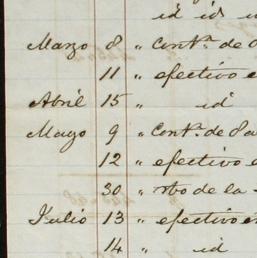 id id i
Marzo 8 " Contᵃ. de
11 " efectivo e
Abril 15 " id
Mayo 9 " Contᵃ. de 8 a
12 " efectivo e
30 " rbo de la
Julio 13 " efectivo en
14 " id